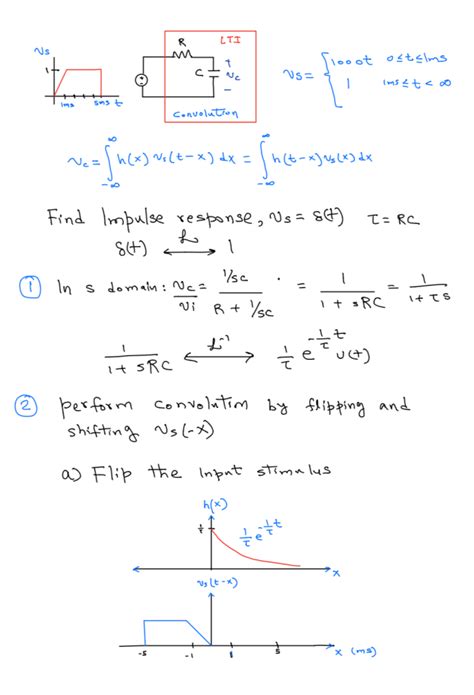 R LTI
Vs
1
C
+
Vc
−
1ms 5ms t
Convolution
Vs = { 1000t 0≤t≤1ms
1 1ms≤t<∞
Vc = ∫_{-∞}^{∞} h(x) Vs(t-x) dx = ∫_{-∞}^{∞} h(t-x) Vs(x) dx
Find Impulse response, Vs = δ(t) τ = RC
δ(t) ⟷ 1
① In s domain: Vc/Vi = (1/sC)/(R + 1/sC) = 1/(1 + sRC) = 1/(1+τs)
1/(1+sRC) ⟷ (L⁻¹) 1/τ e^{-1/τ t} u(t)
② perform convolution by flipping and
shifting Vs(-x)
a) Flip the input stimulus
h(x)
1/τ 1/τ e^{-1/τ t}
x
Vs(t-x)
-5 -1 5 x (ms)